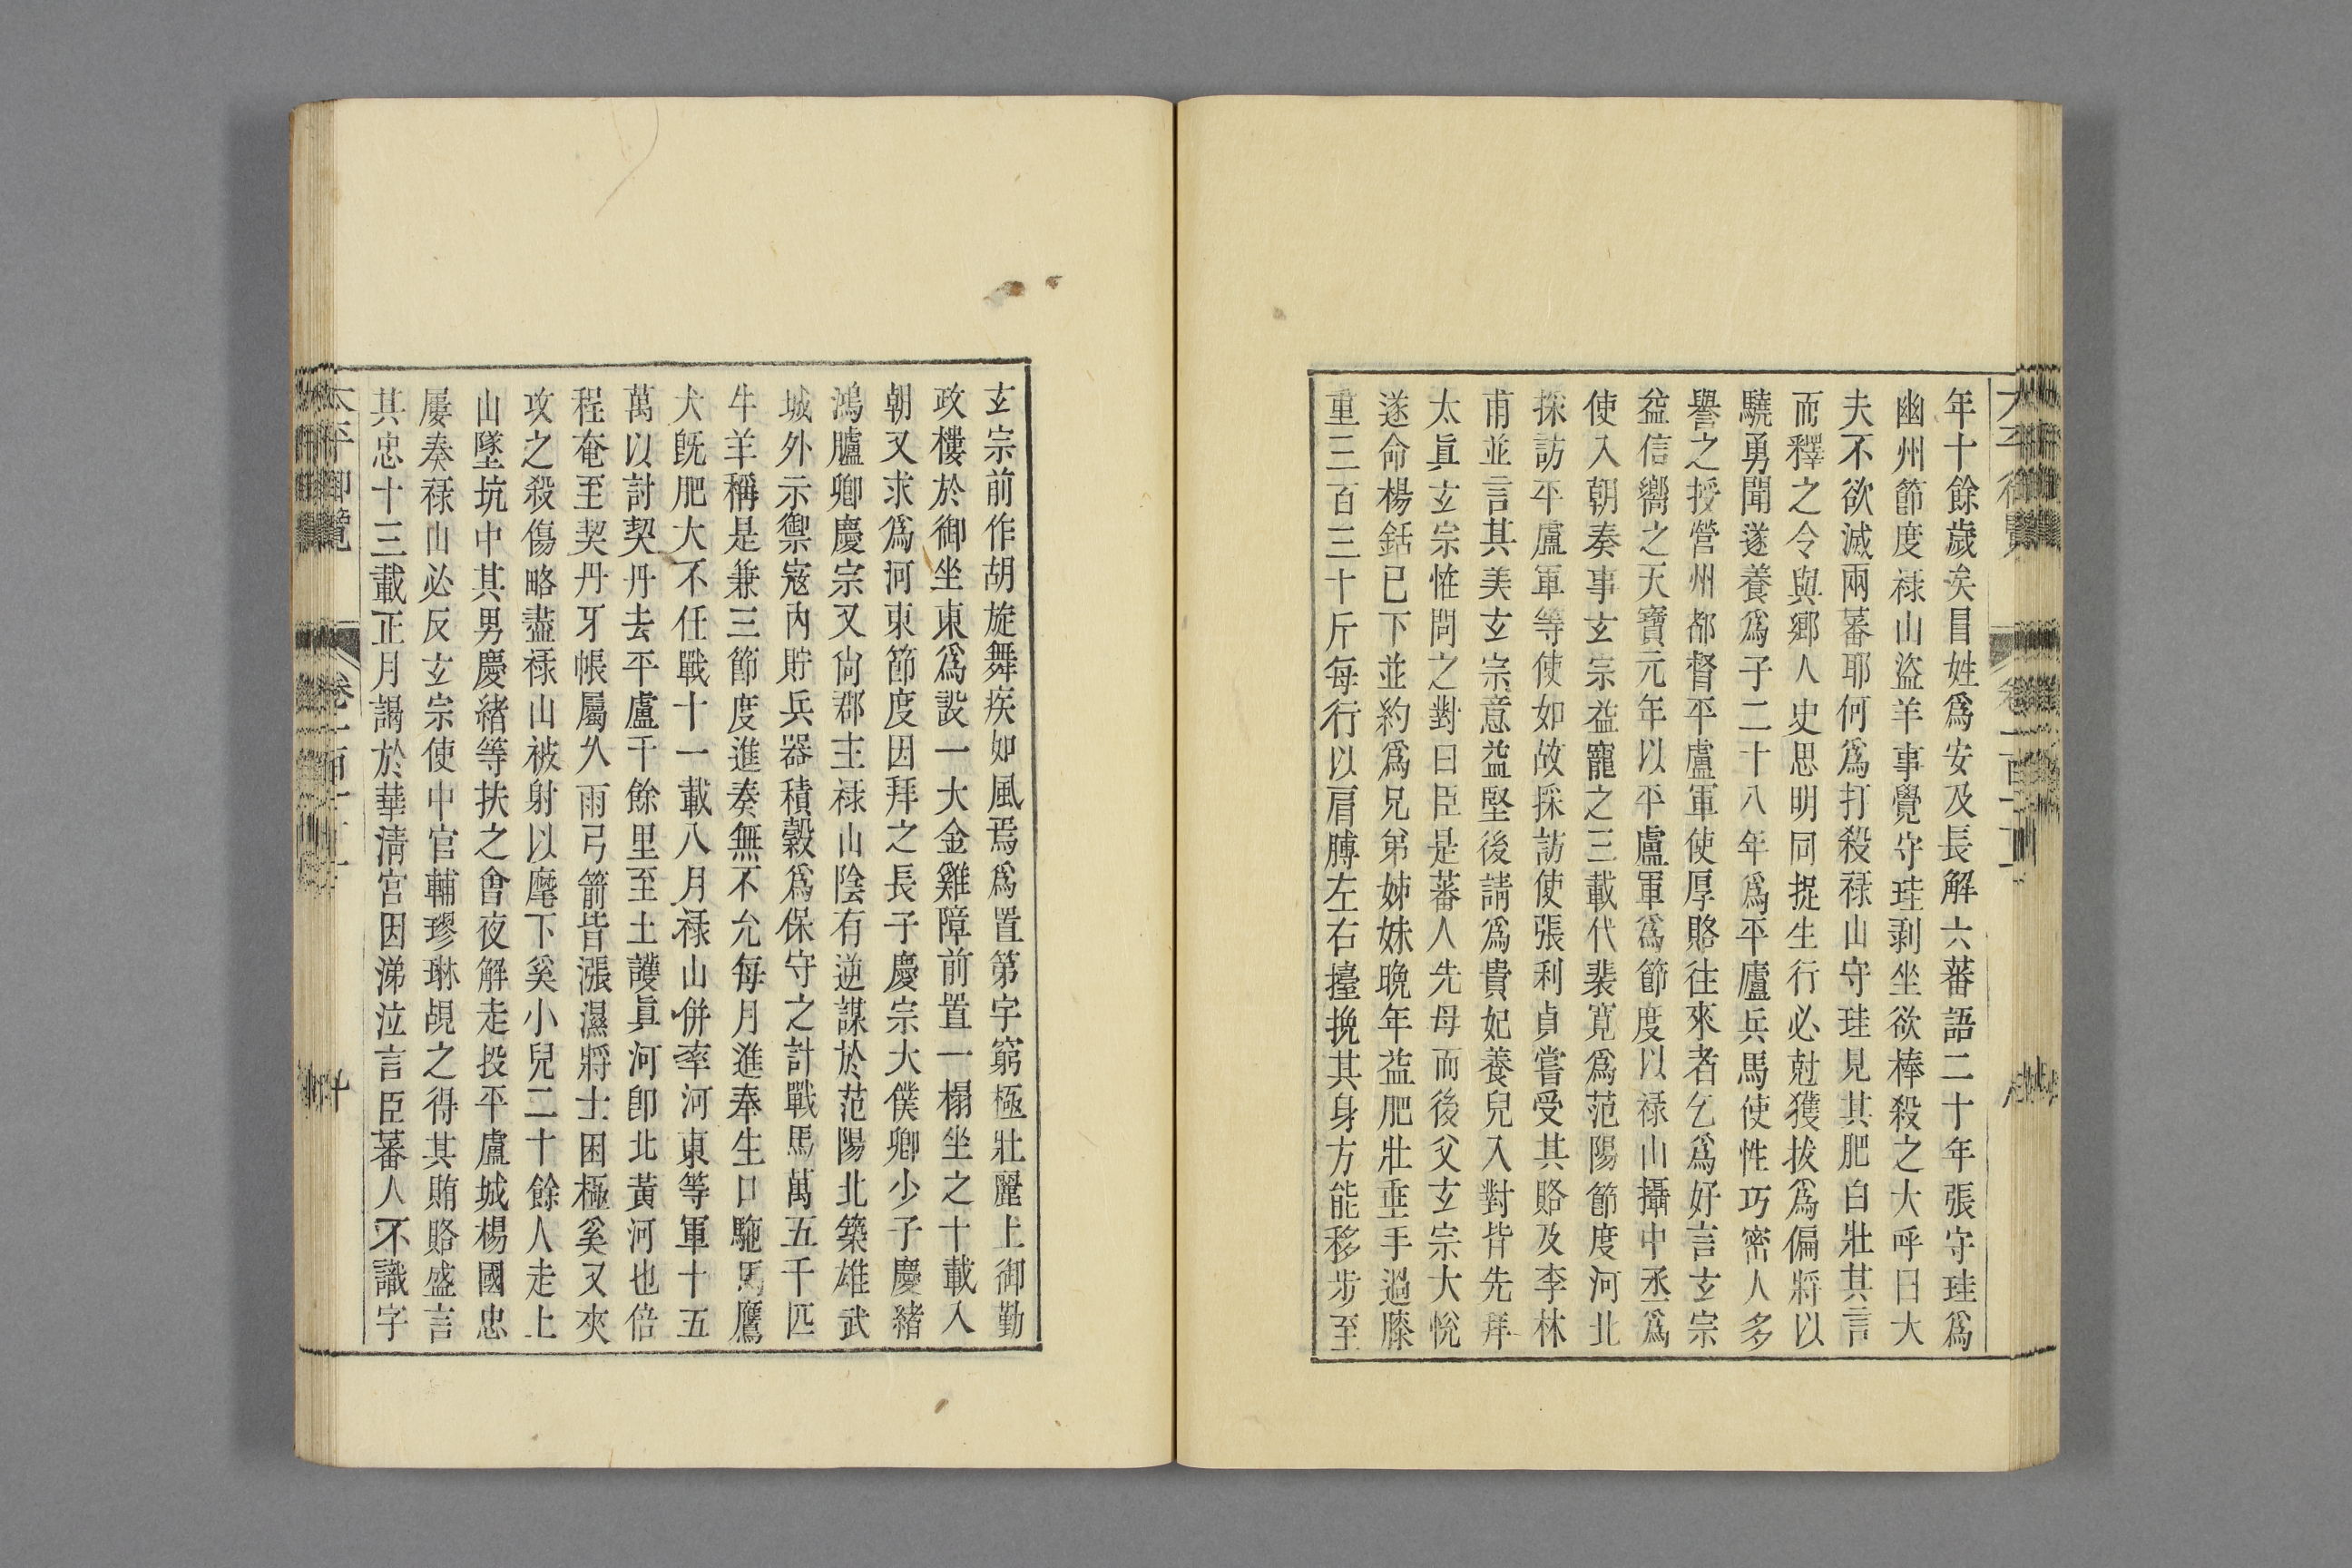 年十餘歲矣冐姓爲安及長解六蕃語二十年張守珪爲
幽州節度禄山盜羊事覺守珪剥坐欲棒殺之大呼曰大
夫不欲滅兩蕃耶何爲打殺禄山守珪見其肥白壯其言
而釋之令與郷人史思明同捉生行必尅獲拔爲偏將以
驍勇聞遂養爲子二十八年爲平廬兵馬使性巧密人多
譽之授營州都督平盧軍使厚賂往來者乞爲好言玄宗
益信嚮之天寶元年以平盧軍爲節度以禄山攝中丞爲
使入朝奏事玄宗益寵之三載代裴寛爲范陽節度河北
採訪平盧軍等使如故採訪使張利貞嘗受其賂及李林
甫並言其美玄宗意益堅後請爲貴妃養兒入對皆先拜
太眞玄宗惟問之對曰臣是蕃人先母而後父玄宗大恱
遂命楊銛已下並約爲兄弟姊妹晚年益肥壯垂手過膝
重三百三十斤每行以肩膊左右擡挽其身方能移步至
玄宗前作胡旋舞疾如風焉爲置第宇窮極壯麗上御勤
政樓於御坐東爲設一大金雞障前置一榻坐之十載入
朝又求爲河東節度因拜之長子慶宗大僕卿少子慶緒
鴻臚卿慶宗又尙郡主禄山陰有逆謀於范陽北築雄武
城外示禦寇内貯兵器積穀爲保守之計戰馬萬五千匹
牛羊稱是兼三節度進奏無不允每月進奉生口駞馬鷹
犬旣肥大不任戰十一載八月禄山併率河東等軍十五
萬以討契丹去平盧千餘里至土護眞河卽北黃河也倍
程奄至契丹牙帳屬久雨弓箭皆漲濕將士困極奚又夾
攻之殺傷略盡禄山被射以麾下奚小兒二十餘人走上
山墜坑中其男慶緒等扶之會夜解走投平盧城楊國忠
屢奏禄山必反玄宗使中官輔璆琳覘之得其賄賂盛言
其忠十三載正月謁於華清宫因涕泣言臣蕃人不識字